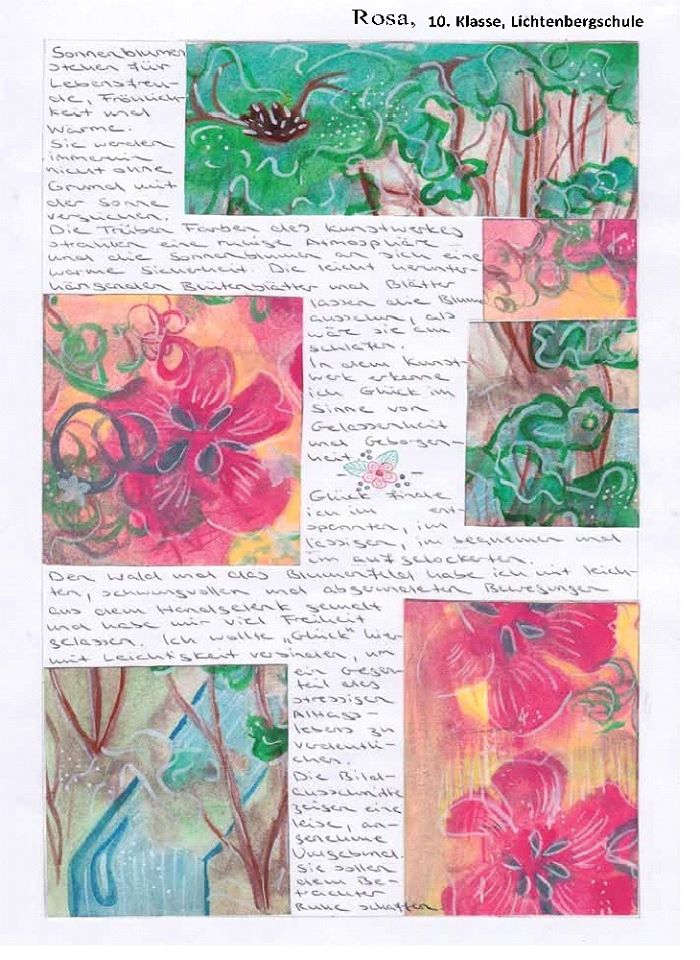 Rosa, 10. Klasse, Lichtenbergschule
Sonnenblumen
stehen für
Lebensfreu-
de, Fröhlich-
keit und
Wärme.
Sie werden
immerhin
nicht ohne
Grund mit
der Sonne
verglichen.
Die Trüben Farben des Kunstwerkes
strahlen eine ruhige Atmosphäre
und die Sonnenblumen an sich eine
warme Sicherheit. Die leicht herunter-
hängenden Blütenblätter und Blätter
lassen die Blume
aussehen, als
wäre sie am
schlafen.
In dem Kunst-
werk erkenne
ich Glück im
Sinne von
Gelassenheit
und Geborgen-
heit.
Glück finde
ich im ent-
spannten, im
lässigen, im bequemen und
im aufgelockerten.
Den Wald und das Blumenfeld habe ich mit leich-
ten, schwungvollen und abgerundeten Bewegungen
aus dem Handgelenk gemalt
und habe mir viel Freiheit
gelassen. Ich wollte „Glück" hier
mit Leichtigkeit verbinden, um
ein Gegen-
teil des
stressigen
Alltags-
lebens zu
verdeutli-
chen.
Die Bild-
ausschnitte
zeigen eine
leise, an-
genehme
Sie sollen
dem Be-
trachter
Ruhe schaffen.